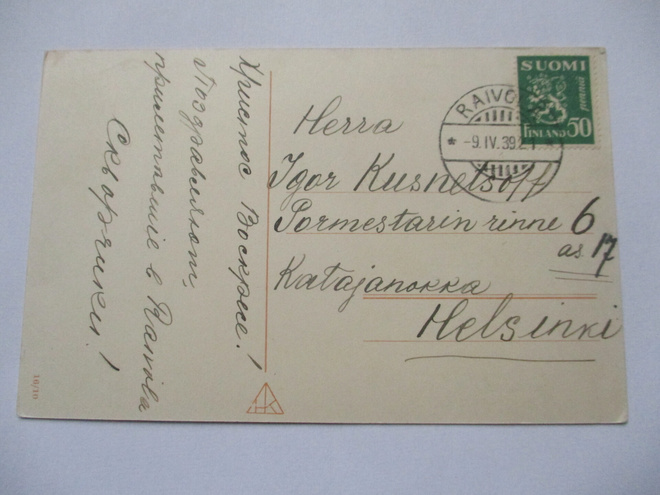 Христос Воскресе!
Поздравляют,
прилетавшие в Raivola
Скворчики!
SUOMI
50 penniä
FINLAND
RAIVOLA
* -9.IV.39.
Herra
Igor Kusnetsoff
Pormestarin rinne 6
as 17
Katajanokka
Helsinki
10/10